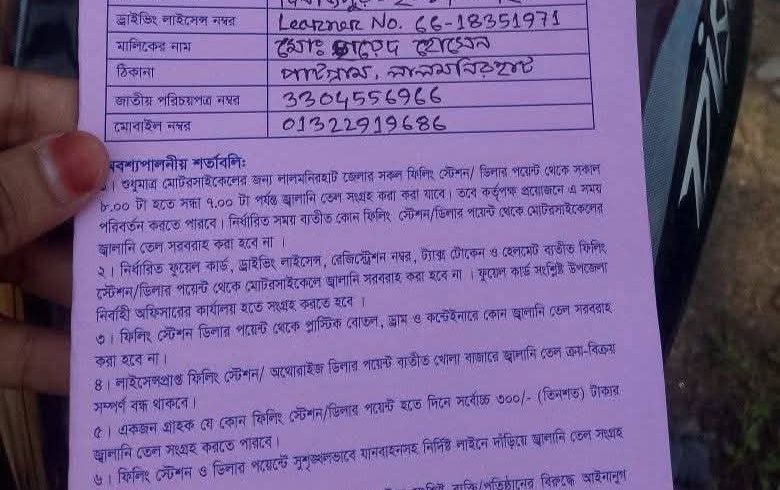 ড্রাইভিং লাইসেন্স নম্বর Learner No. 66-18351971
মালিকের নাম মোঃ জাবেদ হোসেন
ঠিকানা পাটগ্রাম, লালমনিরহাট
জাতীয় পরিচয়পত্র নম্বর 3304556966
মোবাইল নম্বর 01322919686
অবশ্যপালনীয় শর্তাবলি:
১। শুধুমাত্র মোটরসাইকেলের জন্য লালমনিরহাট জেলার সকল ফিলিং স্টেশন/ ডিলার পয়েন্ট থেকে সকাল
৮.০০ টা হতে সন্ধা ৭.০০ টা পর্যন্ত জ্বালানি তেল সংগ্রহ করা করা যাবে। তবে কর্তৃপক্ষ প্রয়োজনে এ সময়
পরিবর্তন করতে পারবে। নির্ধারিত সময় ব্যতীত কোন ফিলিং স্টেশন/ডিলার পয়েন্ট থেকে মোটরসাইকেলের
জ্বালানি তেল সরবরাহ করা হবে না ।
২। নির্ধারিত ফুয়েল কার্ড, ড্রাইভিং লাইসেন্স, রেজিস্ট্রেশন নম্বর, ট্যাক্স টোকেন ও হেলমেট ব্যতীত ফিলিং
স্টেশন/ডিলার পয়েন্ট থেকে মোটরসাইকেলে জ্বালানি সরবরাহ করা হবে না । ফুয়েল কার্ড সংশ্লিষ্ট উপজেলা
নির্বাহী অফিসারের কার্যালয় হতে সংগ্রহ করতে হবে ।
৩। ফিলিং স্টেশন ডিলার পয়েন্ট থেকে প্লাস্টিক বোতল, ড্রাম ও কন্টেইনারে কোন জ্বালানি তেল সরবরাহ
করা হবে না।
৪। লাইসেন্সপ্রাপ্ত ফিলিং স্টেশন/ অথোরাইজড ডিলার পয়েন্ট ব্যতীত খোলা বাজারে জ্বালানি তেল ক্রয়-বিক্রয়
সম্পূর্ণ বন্ধ থাকবে।
৫। একজন গ্রাহক যে কোন ফিলিং স্টেশন/ডিলার পয়েন্ট হতে দিনে সর্বোচ্চ ৩০০/- (তিনশত) টাকার
জ্বালানি তেল সংগ্রহ করতে পারবে।
৬। ফিলিং স্টেশন ও ডিলার পয়েন্টে সুশৃঙ্খলভাবে যানবাহনসহ নির্দিষ্ট লাইনে দাঁড়িয়ে জ্বালানি তেল সংগ্রহ
ব্যক্তি/প্রতিষ্ঠানের বিরুদ্ধে আইনানুগ